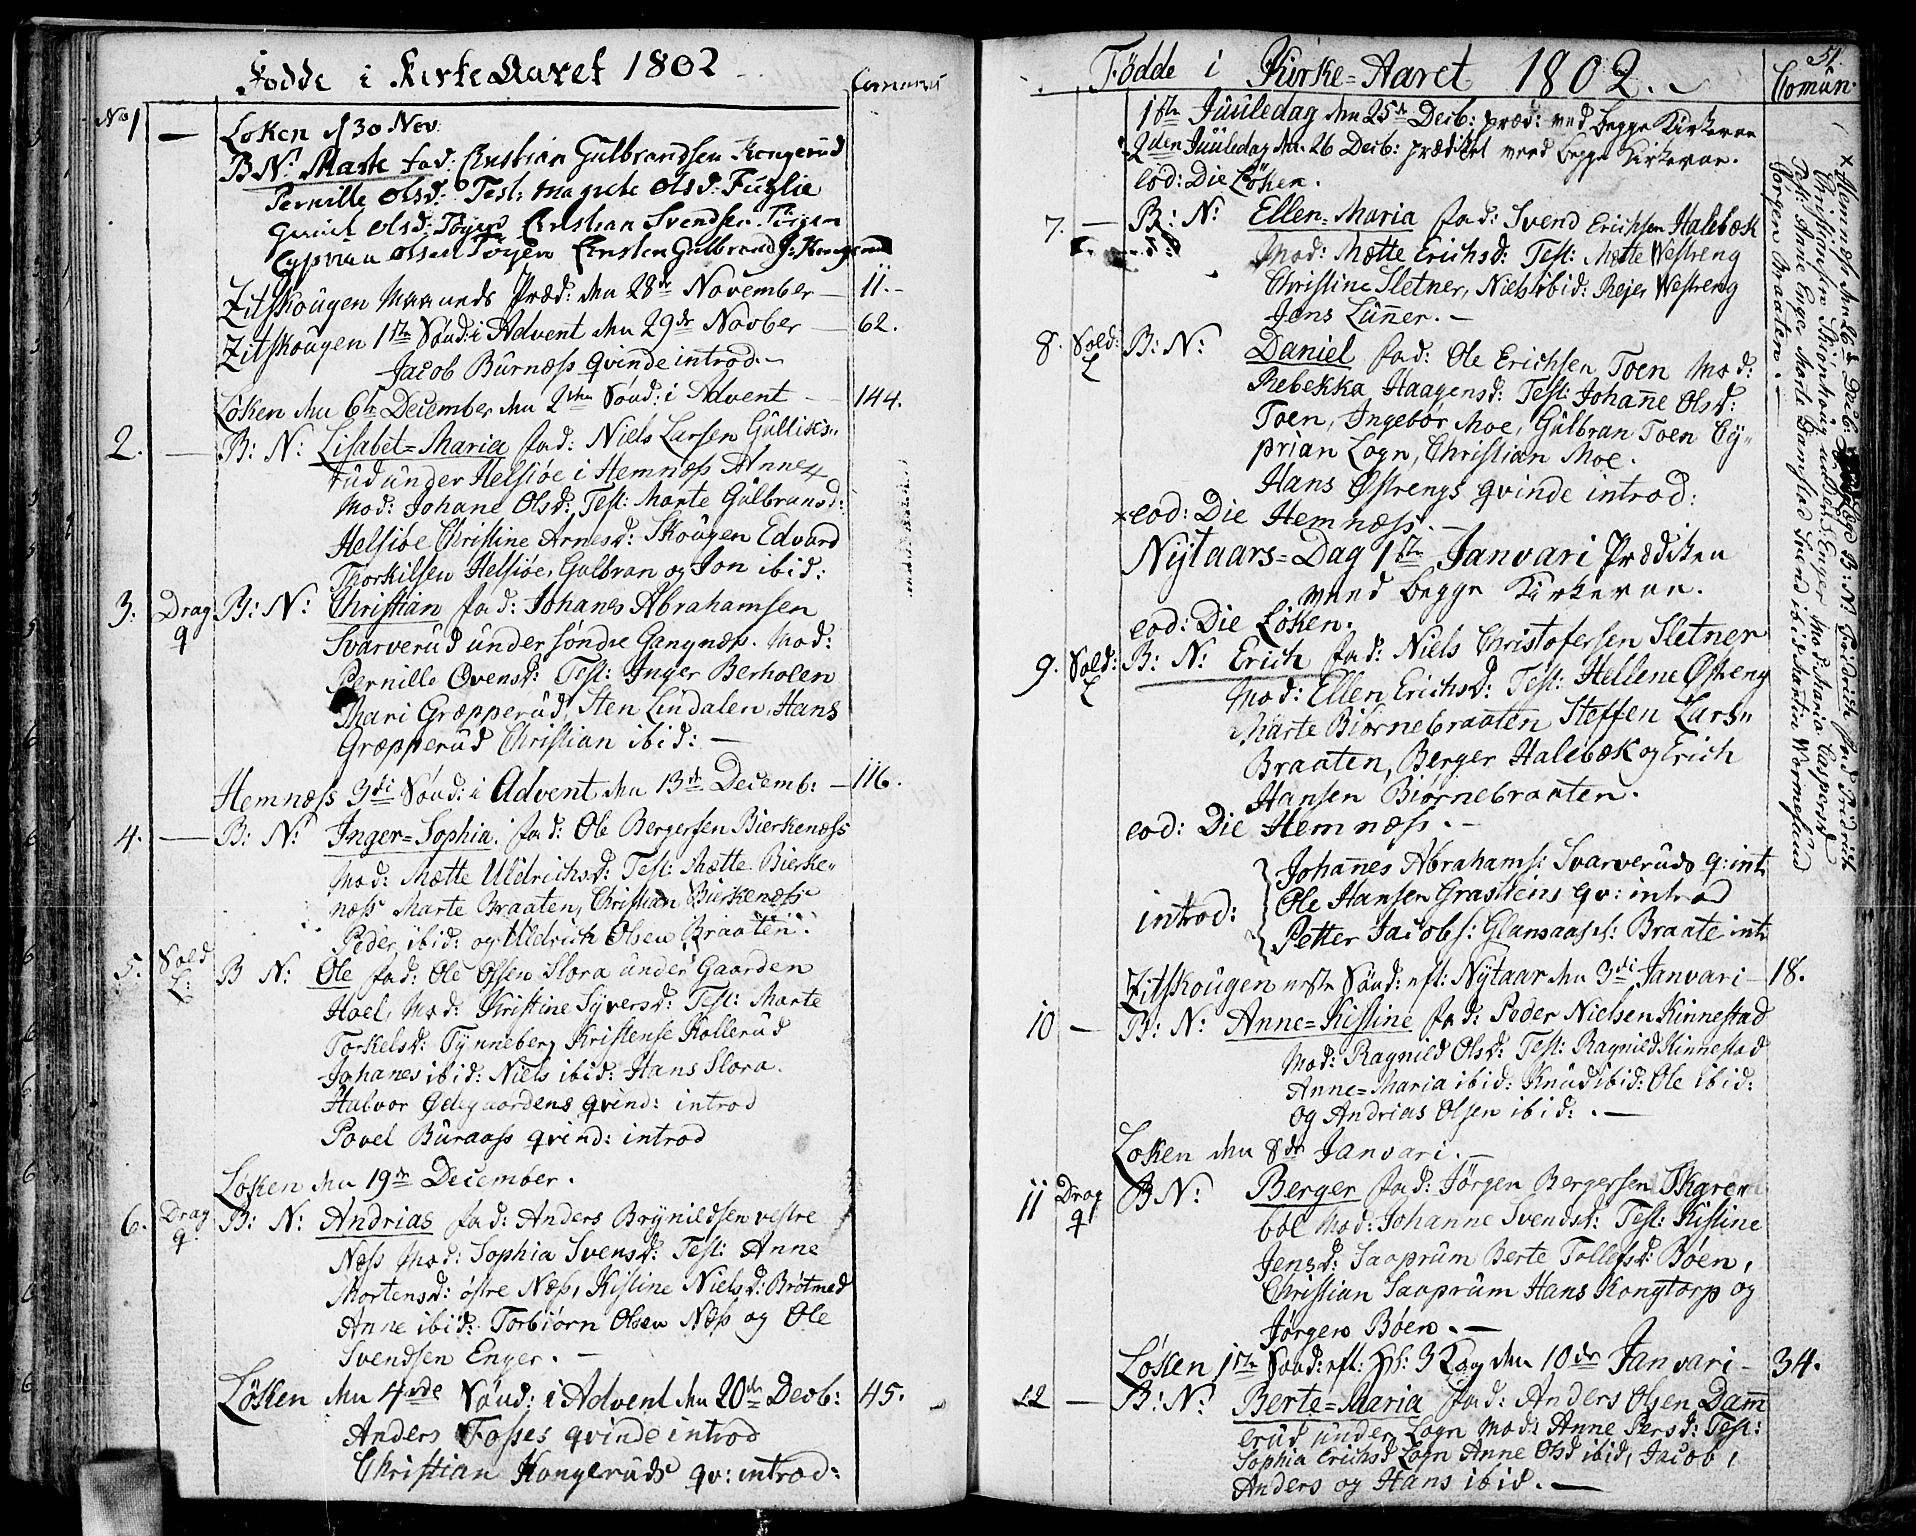 Fødde i Kirke Aaret 1802
Comuni
No 1 — Løken d 30 Nov:
B N: Marte fad: Christian Gulbrandsen Kongerud
Pernille Olsd: Test: Magrete Olsd: Fuglie
Gunil Olsd: Tøyen Christian Svendsen Tøyen
Cyprian Olsen Tøyen Christen Gulbrands: Kongerud
Zitskougen Maaneds Præd: den 28de November — 11.
Zitskougen 1ste Sönd: i Advent den 29de Novber — 62.
Jacob Burnæss qvinde introd. —
Løken den 6te December den 2den Sönd: i Advent — 144.
2. — B: N: Lisabet=Maria fad: Niels Larsen Gulliks=
rud under Helsiøe i Hemnæss Annex
Mod: Johane Olsd: Test: Marte Gulbransd:
Helsiøe Christine Arnesd: Skougen Edvard
Thorkilsen Helsiøe, Gulbran og Jon ibid:
3. Drag q B: N: Christian fad: Johanes Abrahamsen
Svarverud under søndre Gangnæs. Mod:
Pernille Ovensd: Test: Inger Berholen
Mari Græpperud, Sten Lindalen, Hans
Græpperud Christian ibid: —
Hemnæss 3di Sönd: i Advent den 13de Decemb: — 116.
4. — B: N: Inger=Sophia. fad: Ole Bergersen Bierkenæss
Mod: Mætte Uldrichsd: Test: Mætte Bierke=
næss Marte Braaten, Christian Birkenæss
Peder ibid: og Uldrich Olsen Braaten.
5. Sold L: B N: Ole fad: Ole Olsen Slora under Gaarden
Hoel, Mod: Kristine Syversd: Test: Marte
Torkelsd: Tynneberg Kristense Kollerud
Johanes ibid: Niels ibid: Hans Slora.
Halvor Ødegaardens qvind: introd
Povel Buraass qvind: introd
Løken den 19de December.
6. Drag q. B: N: Andrias fad: Anders Brynildsen vestre
Næss Mod: Sophia Svensd: Test: Anne
Mortensd: østre Næss, Kistine Nielsd: Brøtmed
Anne ibid: Torbiørn Olsen Næss og Ole
Svendsen Enger. —
Løken den 4nde Sönd: i Advent den 20de Decb: 45.
Anders Fosses qvinde introd
Christian Kongeruds qv: introd:
51.
Fødde i Kirke=Aaret 1802.
Comun
1ste Juuledag den 25de Decb: præd: ved begge Kirkerne
2den Juuledag den 26 Decb: prædiket ved begge Kirkerne.
eod: Die Løken.
7. — B: N: Ellen=Maria fad: Svend Erichsen Halebæk
Mod: Mætte Erichsd: Test: Mætte Westreng
Christine Sletner, Niels ibid: Rejer Westreng
Jens Lunner. —
8. Sold: L B: N: Daniel fad: Ole Erichsen Toen Mod:
Rebekka Haagensd: Test: Johanne Olsd:
Toen, Ingebor Moe, Gulbran Toen Cy=
prian Logn, Christian Moe.
Hans Østrengs qvinde introd:
*eod: Die Hemnæss. —
Nytaars=Dag 1ste Janvari Prædiken
ved begge Kirkerne.
eod: Die Løken.
9. Sold: L B: N: Erich fad: Niels Christofersen Sletner
Mod: Ellen Erichsd: Test: Hellene Østreng
Marte Biørnebraaten Steffen Lars=
Braaten, Berger Halebæk og Erich
Hansen Biørnebraaten.
eod: Die Hemnæss. —
introd: Johannes Abrahams: Svarveruds q: int
Ole Hansen Grasteins qv: introd
Petter Jacobs: Glamaases: Braate int
Zitskougen Sönd: eft: Nytaar den 3di Janvari — 18.
10 — B: N: Anne=Kistine fad: Peder Nielsen Kinnestad
Mod: Ragnild Olsd: Test: Ragnild Kinnestad
Anne=Maria ibid: Knud ibid: Ole ibid:
og Andrias Olsen ibid: . —
Løken den 8de Janvari. —
11 Drag q B N: Berger fad: Jørgen Bergersen Skgren
bøl Mod: Johanne Svendsd: Test: Kistine
Jensd: Saaprum Berte Tollefsd: Bøen,
Christian Saaprum Hans Kongtorp og
Jørgen Bøen. —
Løken 1ste Sönd: eft: H: 3 Kong den 10de Janvari — 34.
12 — B: N: Berte=Maria fad: Anders Olsen Dam
erud under Logn Mod: Anne Persd: Test:
Sophia Erichsd Logn Anne Olsd ibid, Jacob,
Anders og Hans ibid. —
* Hemnæss den 26de Decb: B: N: Fredrich fad Fridrich
Christiansen Skionhoug Enger Mod: Maria Caspersd
Test: Anne Enge, Marte Damstad Svend ibid Martin Wornesund
Jørgen Braaten. —